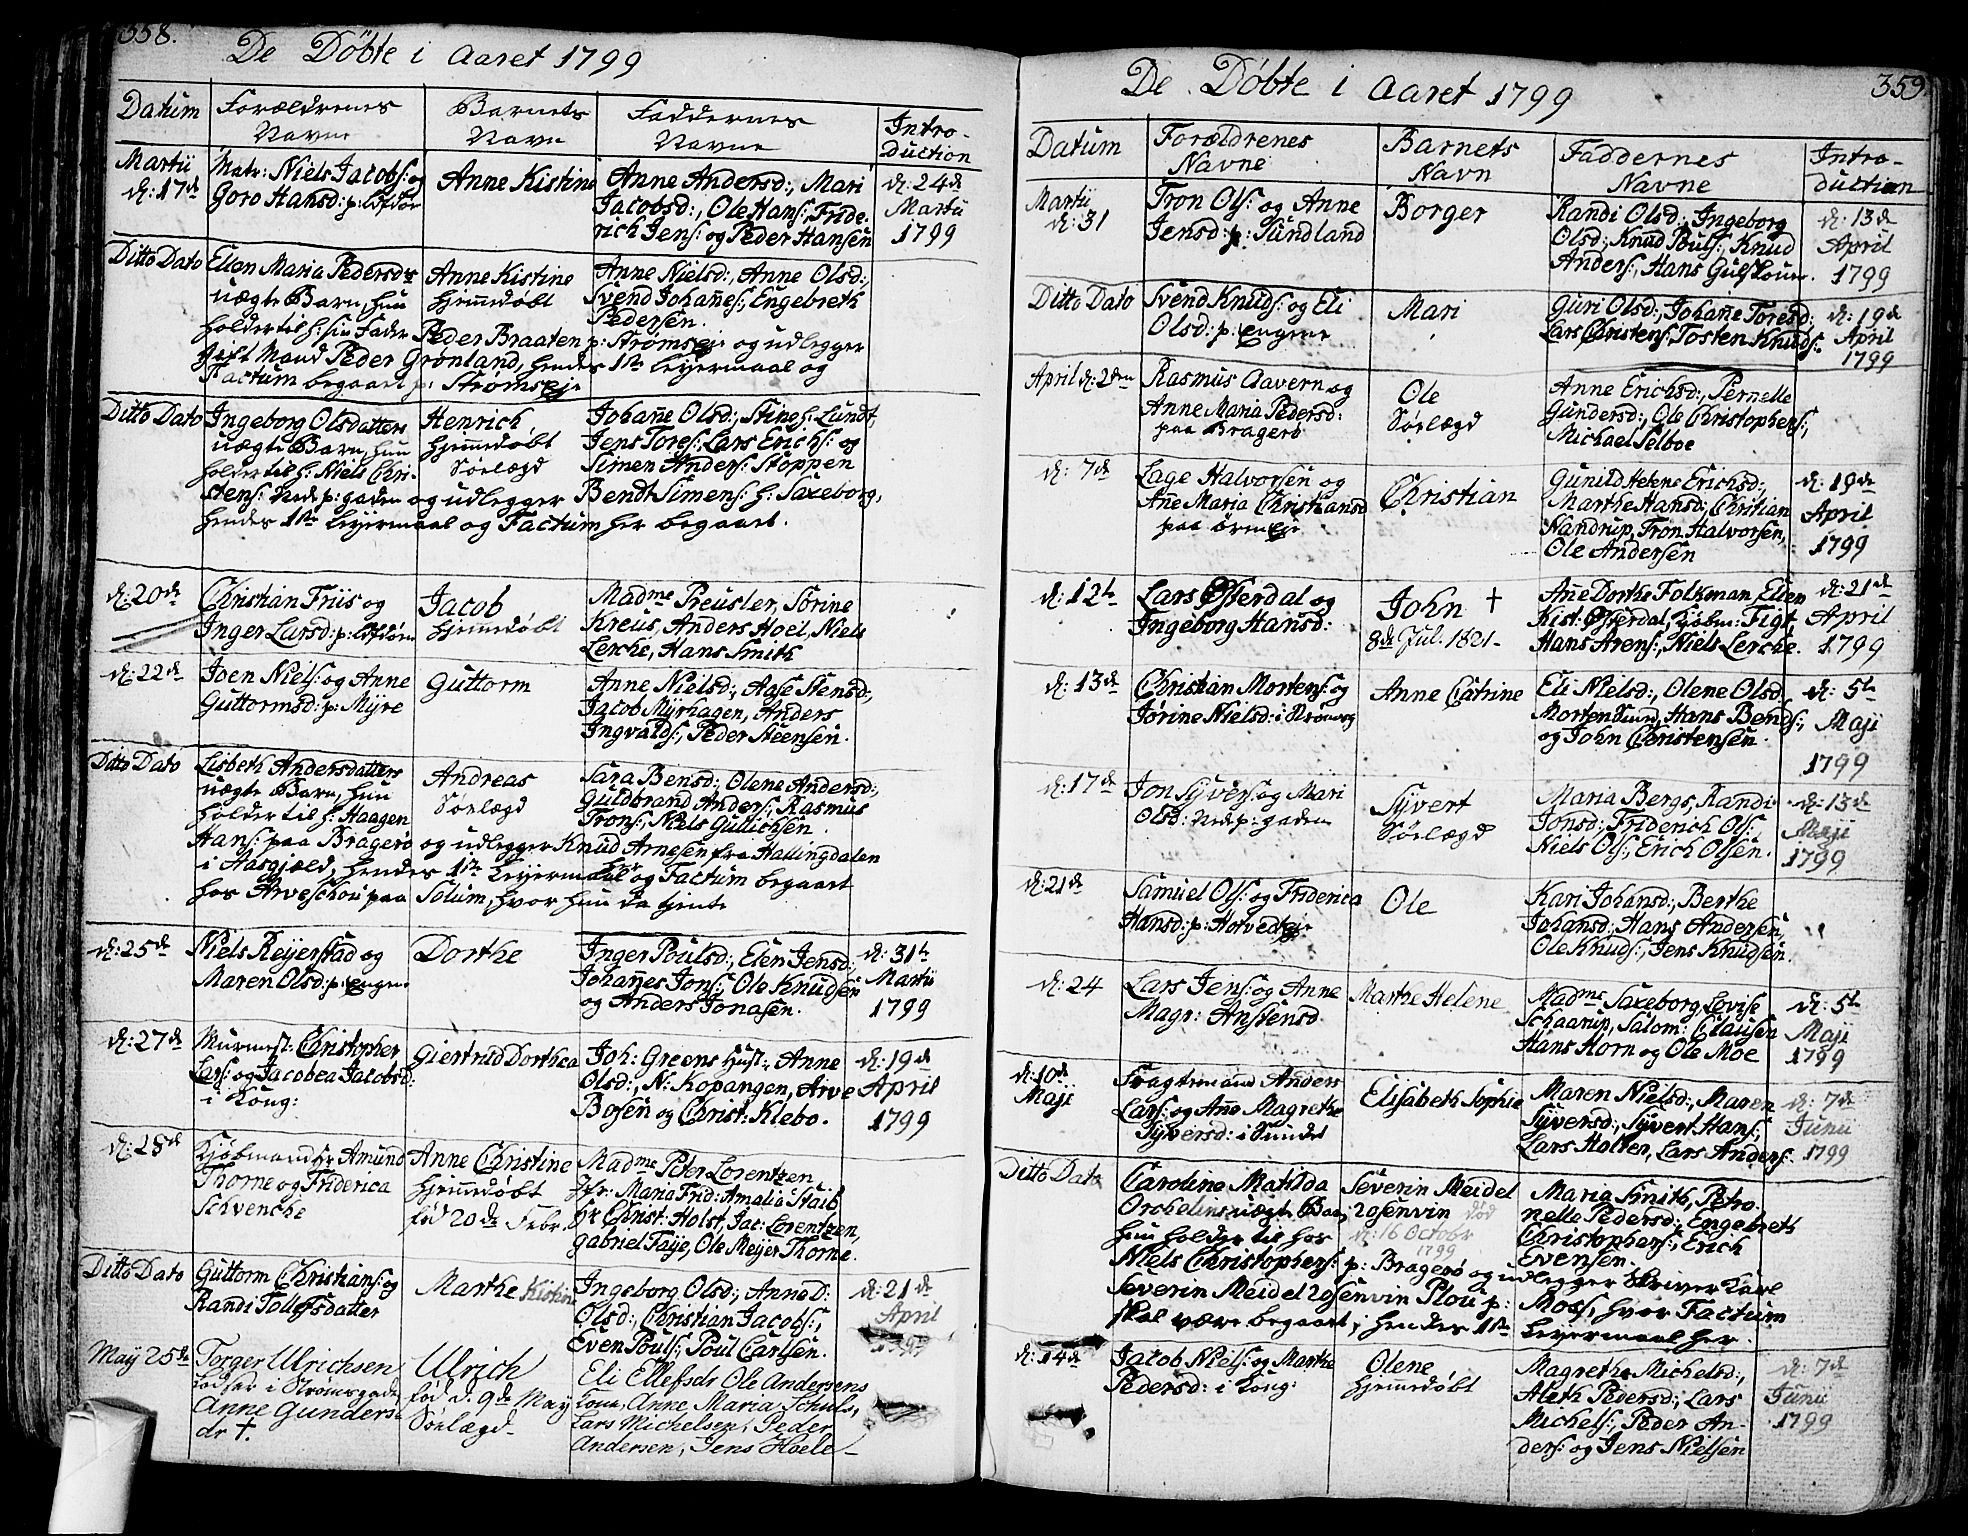 358.
De Döbte i Aaret 1799
Datum Forældrenes Navne Barnets Navn Faddernes Navne Introduction
Martii Matr: Niels Jacobs: og Anne Kistine Anne Andersd:, Mari d: 24de
d: 17de Goro Hansd: p: Jacobsd:, Ole Hans:, Fride- Martii
rich Jens: og Peder Hansen 1799
Ditto Dato Ellen Maria Pedersdrs Anne Kistine Anne Nielsd:, Anne Olsd:,
uægte Barn, hun Hjemmdöbt Svend Johañes:, Engebreth
holder til h: sin Fader Peder Braaten p: Strömseje og udlegger Pedersen.
Gift Mand Peder Grønland, hendes 1ste Leyermaal og
Factum begaaet p: Strømseje
Ditto Dato Ingeborg Olsdatters Henrich Johañe Olsd:, Stine h: Lundt,
uægte Barn, hun Hjemmdöbt Jens Tores:, Lars Erichs: og
holder til h: Niels Chri- Søelægd Simen Anders: Stoppen
stens: Nede p: gaden og udlegger Bendt Simens: h: Saxeborg,
hendes 1ste Leyermaal og Factum her begaaet.
d: 20de Christian Friis og Jacob Madme Preusler, Sörine
Inger Larsd: p: Hjemmdöbt Kreus, Anders Hoel, Niels
Lerche, Hans Smith
d: 22de Joen Niels: og Anne Guttorm Anne Nielsd:, Aase Stensd:,
Guttormsd: p: Myre Jacob Myrhagen, Anders
Ingvalds:, Peder Steensen.
Ditto Dato Lisbeth Andersdatters Andreas Sara Bensd:, Olene Andersd:,
uægte Barn, hun Søelægd Guldbrand Anders:, Rasmus
holder til h: Haagen Trons:, Niels Gullichsen.
Hans: paa Bragerø og udlegger Knud Arnesen fra Hallingdalen
i Aasgjæld, hendes 1ste Leyermaal og Factum begaaet
hos Arveschou paa Solum, hvor hun da tjente
d: 25de Niels Reyerstad og Dorthe Inger Poulsd:, Elen Jensd: d: 31te
Maren Olsd: p: Engen Johañes Jons:, Ole Knudsen Martii
og Anders Jonasen. 1799
d: 27de Murmest: Christopher Giertrud Dorthea Joh: Greens Hust:, Anne d: 19de
Lars: og Jacobea Jacobsd: Olsd:, N: Kopangen, Arve April
i Kong: Bosen og Christ: Klebo. 1799
d: 28de Kjöbmand Hr Amund Anne Christine Madme Peter Lorentzen,
Thorne og Friderica Hjemmdöbt Jfr: Maria Frid: Amalia Staib
Schvencke fød 20de Febr. Hr Christ: Holst, Jac: Lorentzen,
gabriel Faye, Ole Meyer Thorne.
Ditto Dato Guttorm Christians: og Marthe Kistine Ingeborg Olsd:, Anne D: d: 21de
Randi Tollefsdatter Olsd:, Christian Jacobs:, April
Even Pouls:, Poul Carlsen. 1799
Maÿ 25de Torger Ulrichsen Ulrich Eli Ellefsdr Ole Andersens
i Strømsgade fød d. 9de Maÿ Kone, Anne Maria Schuls,
Anne Gunders- Søelægd Lars Michelsen, Peder
dr †. Andersen, Jens Hoele
359
De Döbte i Aaret 1799
Datum Forældrenes Navne Barnets Navn Faddernes Navne Introduction
Martii Tron Ols: og Anne Borger Randi Olsd:, Ingeborg d: 13de
d: 31 Jensd: p: Sundland Olsd:, Knud Pouls:, Knud April
Anders:, Hans 1799
Ditto Dato Svend Knuds: og Eli Mari Guri Olsd:, Johañe Toresd: d: 19de
Olsd: p: Engene Lars Christens:, Tosten Knuds: April
1799
April d: 2den Rasmus Aavern og Ole Anne Erichsd:, Pernelle
Anne Maria Pedersd: Søelægd Gundersd:, Ole Christophers:,
paa Bragerø Michael Selboe
d: 7de Lage Halvorsen og Christian Gunild Helene Erichsd:, d: 19de
Añe Maria Christiansd Marthe Hansd:, Christian April
paa Øreneje Nandrup, Tron Halvorsen, 1799
Ole Andersen
d: 12te Lars Østerdal og John † Añe Dorthe Folkman, Ellen d: 21de
Ingeborg Hansd: 8de Jul: 1821 - Kist: Østerdal, Kjöbm: April
Hans Arens:, Niels Lerche. 1799
d: 13de Christian Mortens: og Anne Catrine Eli Nielsd:, Olene Olsd. d: 5te
Jörine Nielsd: i Morten Sund, Hans Bends:, Maji
og John Christensen. 1799
d: 17de Jon Syvers: og Mari Syvert Maria Bergs, Randi d: 13de
Olsd: Nede p: gaden Søelægd Jonsd:, Friderich Ols:, Maji
Niels Ols:, Erich Olsen. 1799
d: 21de Samuel Ols: og Friderica Ole Kari Johansd:, Berthe
Hansd: p: Hotvedteje Johansd:, Hans Andersen,
Ole Knuds:, Jens Knudsen.
d: 24 Lars Jens: og Anne Marthe Helene Madme Saxeborg, Lovise d: 5te
Magr: Anstensd Schaarup, Salom: Clausen Maji
Hans Horn og Ole Moe 1799
d: 10de Anders Elisabeth Sophie Maren Nielsd:, Maren d: 7de
Maji Lars: og Añe Magrethe Syversd:, Syvert Hans:, Junii
Syversd: i Sundet Lars Holter, Lars Anders: 1799
Ditto Dato Caroline Matilda Severin Meidel Maria Smith, Petro-
Orchelins uægte Barn, Rosenvin død nelle Pedersd:, Engebreth
hun holder til hos d: 16 Octobr 1799 Christophers:, Erich
Niels Christophers: p: Bragerø og udlegger Skriver Karl Evensen.
Severin Meidel Rosenvin Plou p: Moss, hvor Factum
skal være begaaet, hendes 1ste Leyermaal her.
d: 14de Jacob Niels: og Marthe Olene Magrethe Michelsd:, d: 7de
Pedersd: i Kong: Hjemmdöbt Aleth Pedersd:, Lars Junii
Michels:, Peder An- 1799
ders: og Jens Nielsen